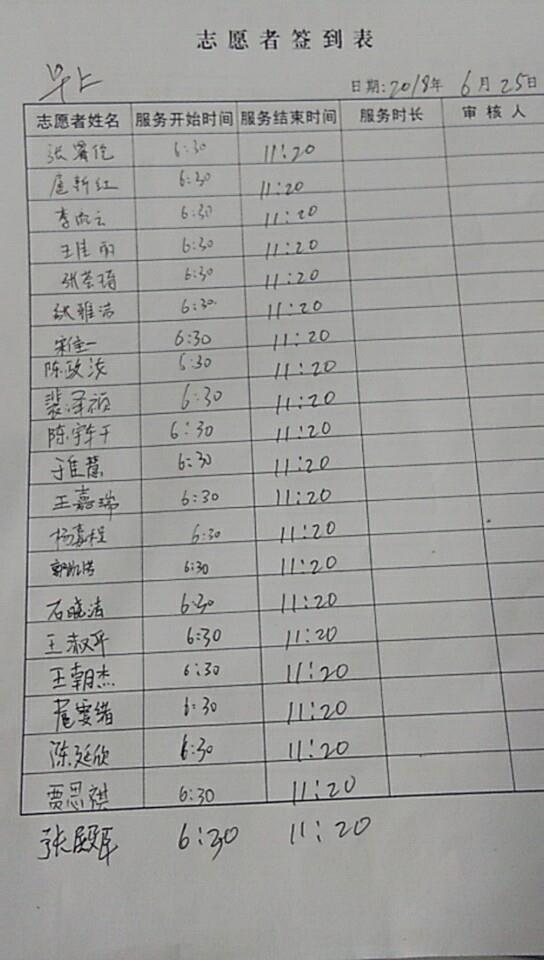 志愿者签到表
早上
日期:2018年 6月25日
志愿者姓名 服务开始时间 服务结束时间 服务时长 审核人
张 6:30 11:20
扈新红 6:30 11:20
李 6:30 11:20
王佳丽 6:30 11:20
张荟琦 6:30 11:20
张雅洁 6:30 11:20
宋佳一 6:30 11:20
陈政汝 6:30 11:20
裴泽祯 6:30 11:20
陈宇轩 6:30 11:20
于佳慧 6:30 11:20
王嘉瑞 6:30 11:20
杨嘉程 6:30 11:20
郭凯浩 6:30 11:20
石晓洁 6:30 11:20
王淑平 6:30 11:20
王朝杰 6:30 11:20
扈雯绪 6:30 11:20
陈延欣 6:30 11:20
贾思祺 6:30 11:20
张殿军 6:30 11:20